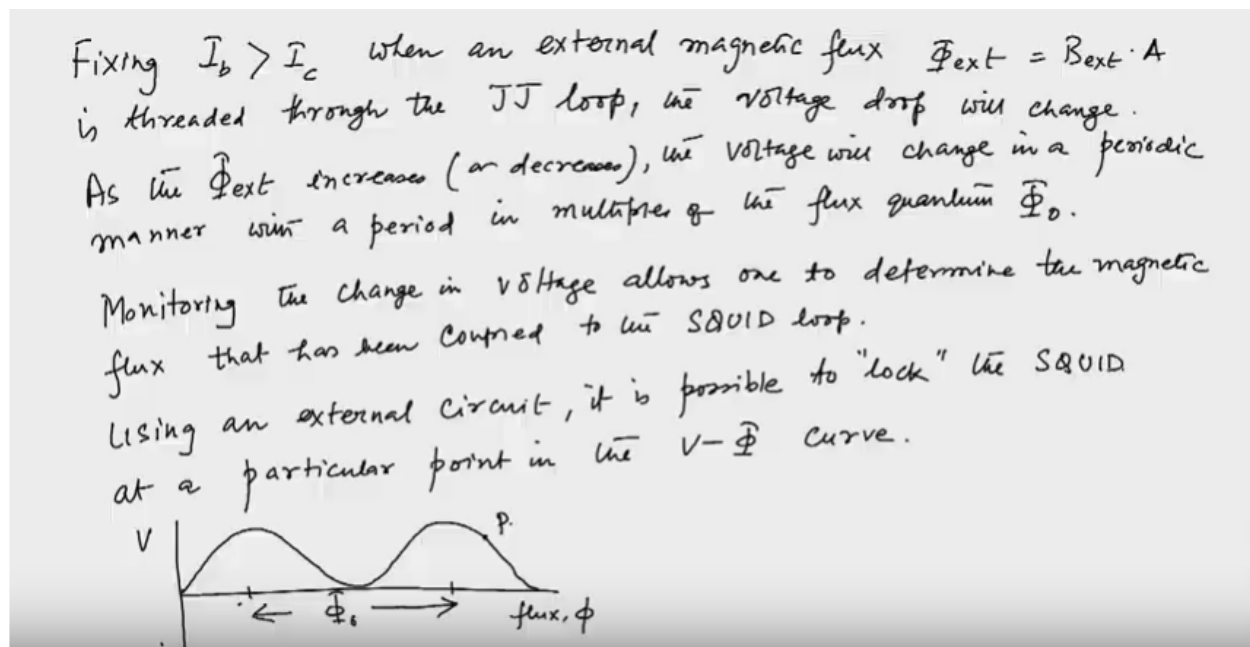 Fixing I_b > I_c when an external magnetic flux Φ_ext = B_ext · A
is threaded through the JJ loop, the voltage drop will change.
As the Φ_ext increases (or decreases), the voltage will change in a periodic
manner with a period in multiples of the flux quantum Φ_0.
Monitoring the change in voltage allows one to determine the magnetic
flux that has been coupled to the SQUID loop.
Using an external circuit, it is possible to "lock" the SQUID
at a particular point in the V-Φ curve.
V
P.
← Φ_0 →
flux, ϕ